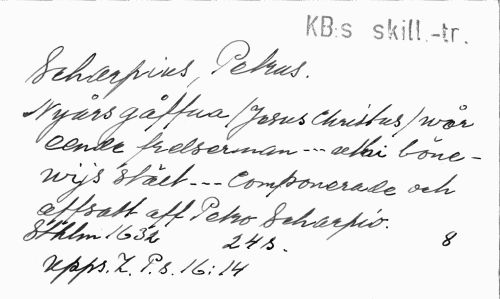 KB:s skill.-tr.
Scharpius, Petrus.
Nyårs gåffua /Jesus Christus/ wår
eende frelserman --- uthi böne-
wijs stält --- Componerade och
affsatt aff Petro Scharpio.
Sthlm 1632 24 s. 8
Upps. Z. P. s. 16:14